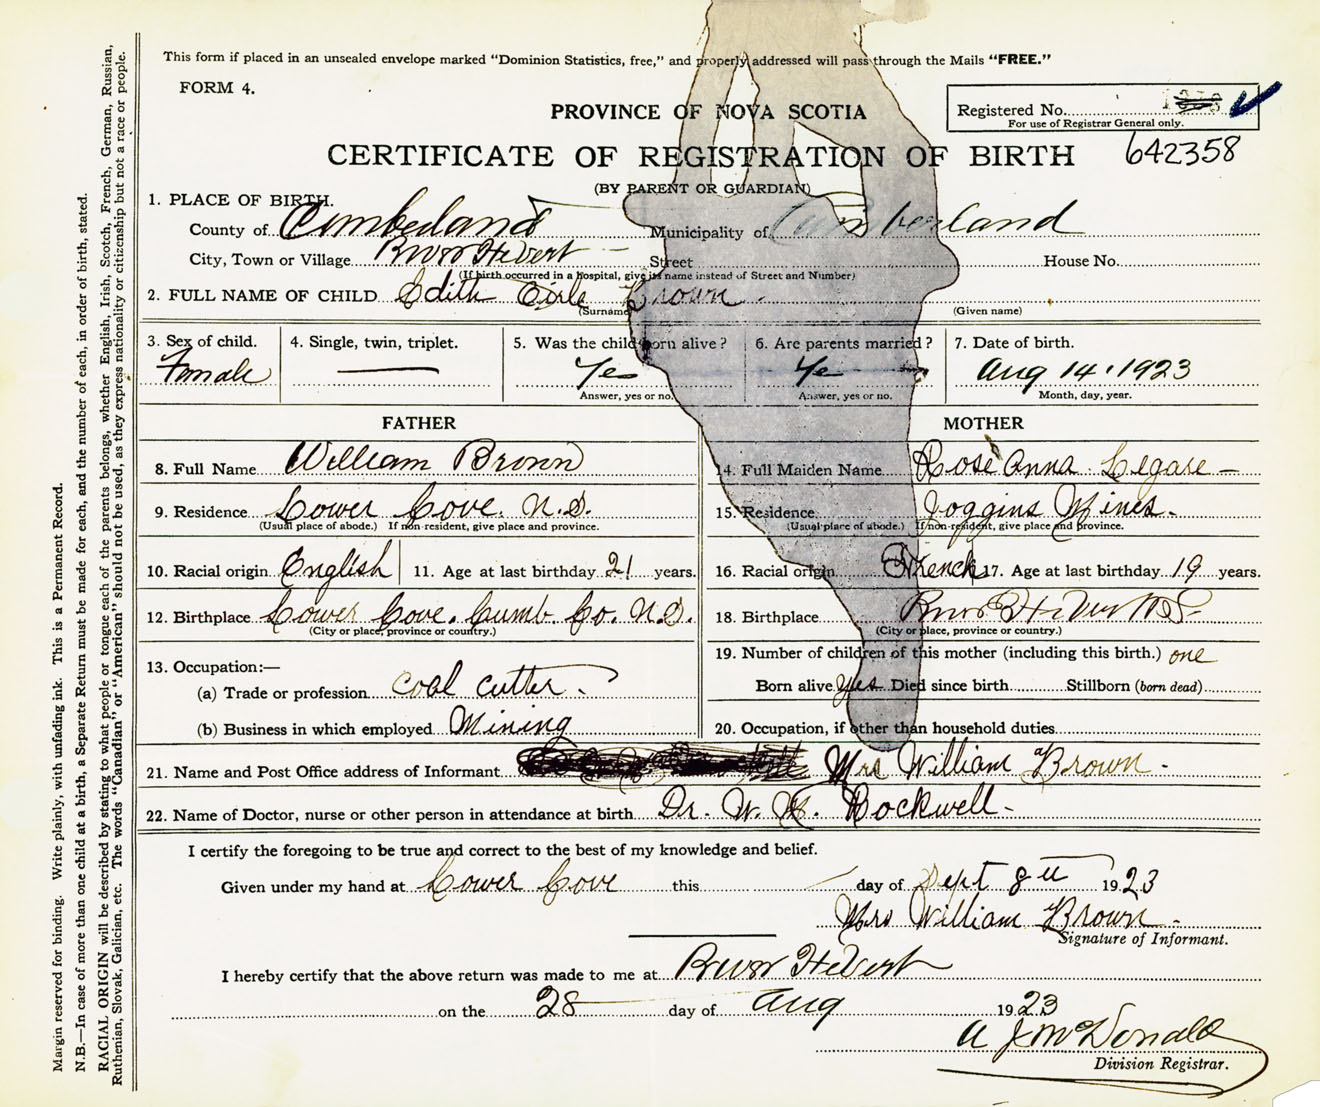 This form if placed in an unsealed envelope marked "Dominion Statistics, free," and properly addressed will pass through the Mails "FREE."
FORM 4.
PROVINCE OF NOVA SCOTIA
Registered No.
For use of Registrar General only.
CERTIFICATE OF REGISTRATION OF BIRTH
642358
(BY PARENT OR GUARDIAN)
1. PLACE OF BIRTH.
County of Cumberland Municipality of Cumberland
City, Town or Village River Hebert Street House No.
(If birth occurred in a hospital, give its name instead of Street and Number)
2. FULL NAME OF CHILD Edith Brown
(Surname) (Given name)
3. Sex of child. 4. Single, twin, triplet. 5. Was the child born alive? 6. Are parents married? 7. Date of birth.
Female — Yes Yes Aug 14, 1923
Answer, yes or no. Answer, yes or no. Month, day, year.
FATHER MOTHER
8. Full Name William Brown 14. Full Maiden Name Rose Anna Legare
9. Residence Lower Cove. N.S. 15. Residence Joggins Mines.
(Usual place of abode.) If non-resident, give place and province. (Usual place of abode.) If non-resident, give place and province.
10. Racial origin English 11. Age at last birthday 21 years. 16. Racial origin French 17. Age at last birthday 19 years.
12. Birthplace Lower Cove. Cumb. Co. N.S. 18. Birthplace River Hebert N.S.
(City or place, province or country.) (City or place, province or country.)
13. Occupation:— 19. Number of children of this mother (including this birth.) one
(a) Trade or profession coal cutter. Born alive yes Died since birth Stillborn (born dead)
(b) Business in which employed Mining 20. Occupation, if other than household duties
21. Name and Post Office address of Informant Mrs William Brown
22. Name of Doctor, nurse or other person in attendance at birth Dr. W. Rockwell
I certify the foregoing to be true and correct to the best of my knowledge and belief.
Given under my hand at Lower Cove this day of Sept 8th 1923
Mrs William Brown
Signature of Informant.
I hereby certify that the above return was made to me at River Hebert
on the 28 day of Aug 1923
A J McDonald
Division Registrar.
Margin reserved for binding. Write plainly, with unfading ink. This is a Permanent Record.
N.B.—In case of more than one child at a birth, a Separate Return must be made for each, and the number of each, in order of birth, stated.
RACIAL ORIGIN will be described by stating to what people or tongue each of the parents belongs, whether English, Irish, Scotch, French, German, Russian,
Ruthenian, Slovak, Galician, etc. The words "Canadian" or "American" should not be used, as they express nationality or citizenship but not a race or people.